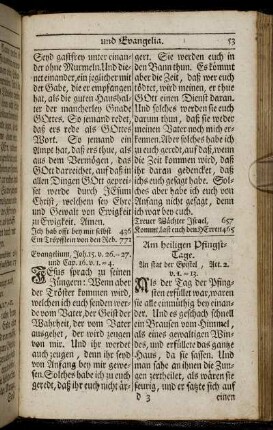 und Evangelia. 53
Seyd gastfrey unter einan-
der ohne Murmeln. Und die-
net einander, ein jeglicher mit
der Gabe, die er empfangen
hat, als die guten Haushal-
ter der mancherley Gnade
GOttes. So jemand redet,
daß ers rede als GOttes
Wort. So jemand ein
Ampt hat, daß ers thue, als
aus dem Vermögen, das
GOtt darreichet, auf daß in
allen Dingen GOtt geprei-
set werde durch JEsum
Christ, welchem sey Ehre
und Gewalt von Ewigkeit
zu Ewigkeit. Amen.
Ich hab offt bey mir selbst 426
Ein Tröpflein von den Reb. 772
Evangelium, Joh. 15. v. 26.-27.
und Cap. 16. v. 1.-4.
JEsus sprach zu seinen
Jüngern: Wenn aber
der Tröster kommen wird,
welchen ich euch senden werde
vom Vater, der Geist der
Wahrheit, der vom Vater
ausgehet, der wird zeugen
von mir. Und ihr werdet
auch zeugen, denn ihr seyd
von Anfang bey mir gewe-
sen. Solches habe ich zu euch
geredt, daß ihr euch nicht är-
gert. Sie werden euch in
den Bann thun. Es kömmt
aber die Zeit, daß wer euch
tödtet, wird meinen, er thue
GOtt einen Dienst daran.
Und solches werden sie euch
darum thun, daß sie weder
meinen Vater noch mich er-
kennen. Aber solches habe ich
zu euch geredt, auf daß, wenn
die Zeit kommen wird, daß
ihr daran gedencket, daß
ichs euch gesagt habe. Sol-
ches aber habe ich euch von
Anfang nicht gesagt, denn
ich war bey euch.
Treuer Wächter Israel, 657
Kommt, last euch den HErren 465
Am heiligen Pfingst-
Tage.
An stat der Epistel, Act. 2.
v. 1.-13.
Als der Tag der Pfing-
sten erfüllet war, waren
sie alle einmüthig bey einan-
der. Und es geschach schnell
ein Brausen vom Himmel,
als eines gewaltigen Win-
des, und erfüllet das gantze
Haus, da sie sassen. Und
man sahe an ihnen die Zun-
gen zertheilet, als wären sie
feurig, und er satzte sich auf
D 3 einen